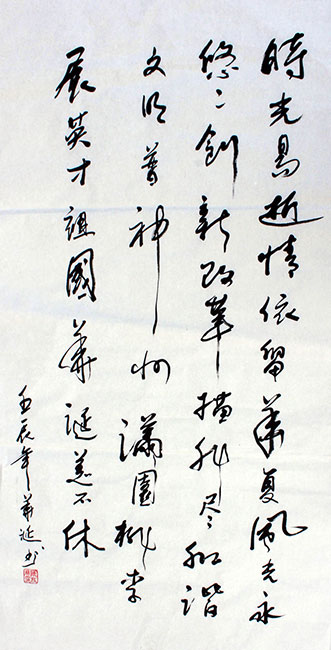 時光易逝情依留華夏風光永
悠々創新改革描尽和諧
文明普神州滿園桃李
展英才祖國華誕美不休
壬辰年延书